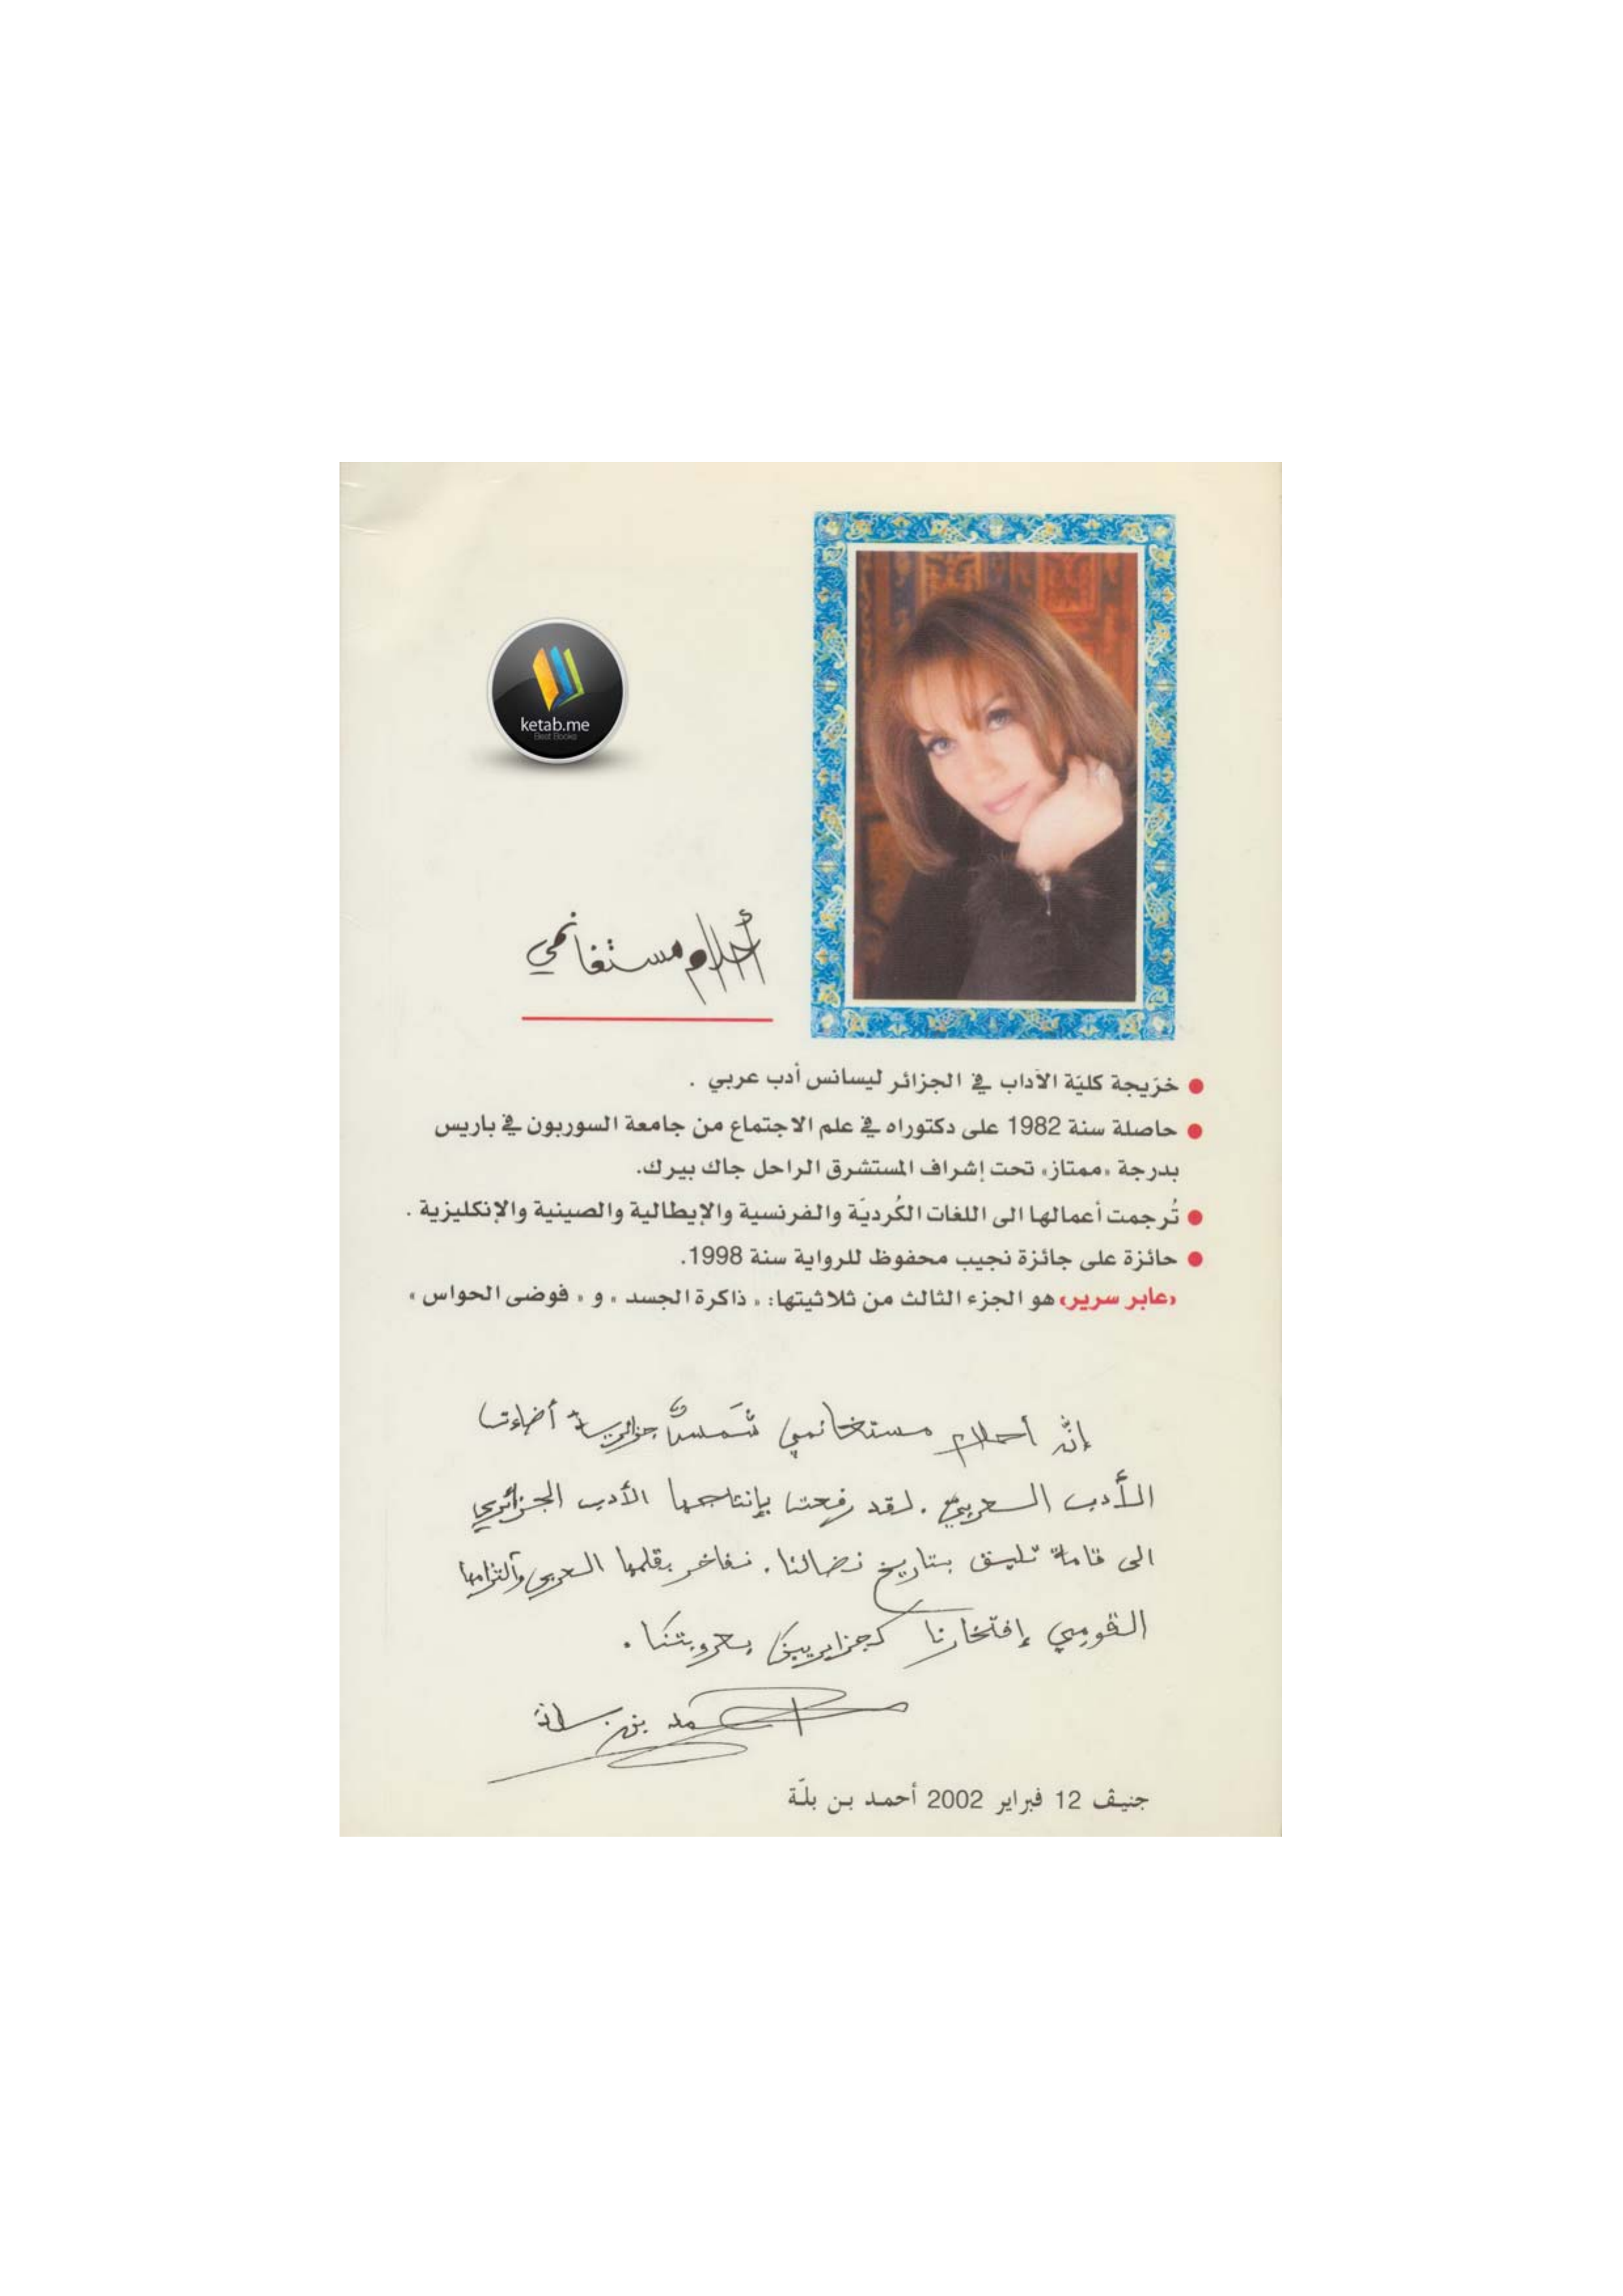 ketab.me
Best Books
أحلام مستغانمي
خرّيجة كليّة الآداب في الجزائر ليسانس أدب عربي .
حاصلة سنة 1982 على دكتوراه في علم الاجتماع من جامعة السوربون في باريس
بدرجة «ممتاز» تحت إشراف المستشرق الراحل جاك بيرك.
تُرجمت أعمالها الى اللغات الكُرديّة والفرنسية والإيطالية والصينية والإنكليزية .
حائزة على جائزة نجيب محفوظ للرواية سنة 1998.
«عابر سرير» هو الجزء الثالث من ثلاثيتها: « ذاكرة الجسد » و « فوضى الحواس »
إنّ أحلام مستغانمي شمسٌ جزائرية أضاءت
الأدب العربيّ . لقد رفعت بإنتاجها الأدب الجزائري
الى قامة تليق بتاريخ نضالنا . نفاخر بقلمها العربي وألتزامها
القومي إفتخارنا كجزائريين بعروبتنا .
أحمد بن بلة
جنيڤ 12 فبراير 2002 أحمد بن بلّة